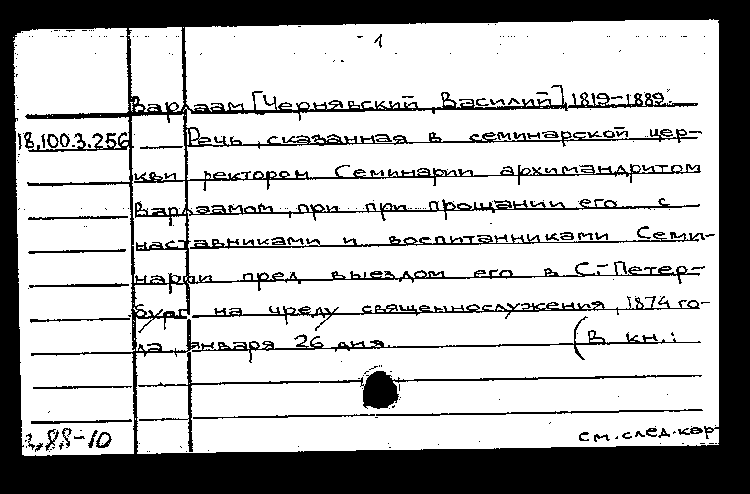 1
Варлаам [Чернявский, Василий], 1819-1889.
18.100.3.256 Речь, сказанная в семинарской цер-
кви ректором Семинарии архимандритом
Варлаамом, при при прощании его с
наставниками и воспитанниками Семи-
нарии пред выездом его в С.-Петер-
бург на чреду священнослужения, 1874 го-
да, января 26 дня. (В кн.:
88-10 см. след. кар-